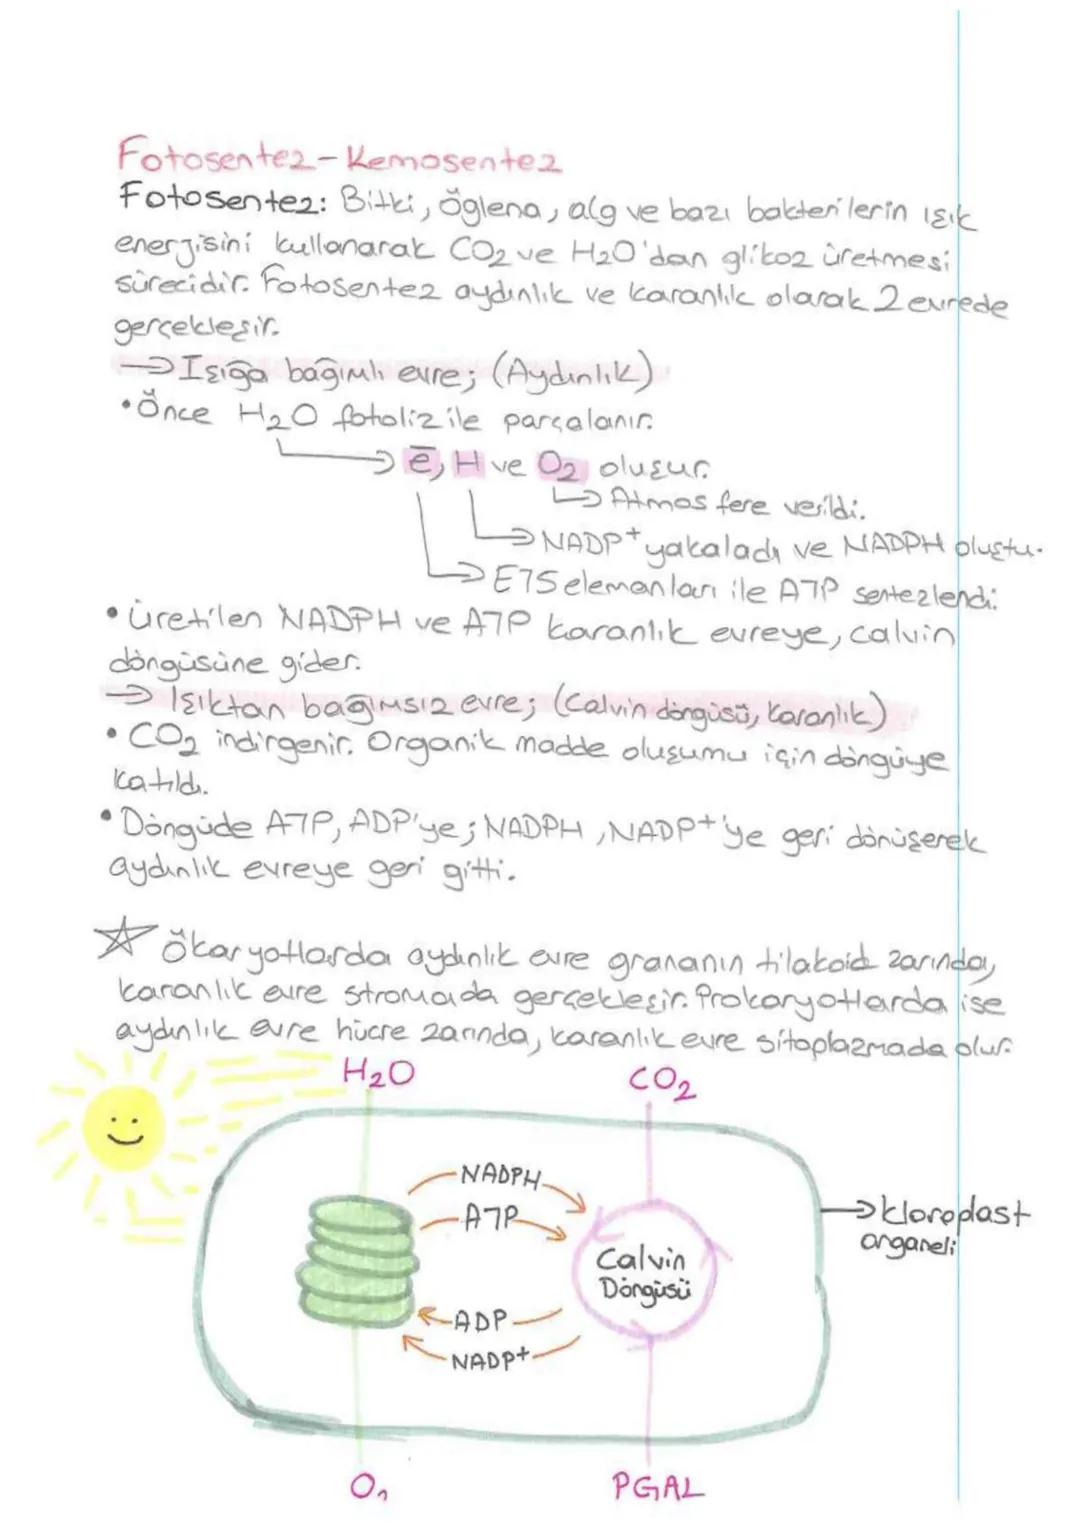 Fotosentez-Kemosentez
Fotosentez: Bitki, öglena, alg ve bazı bakterilerin ışık
enerjisini kullanarak CO2 ve H2O'dan glikoz üretmesi
sürecidir. Fotosentez aydınlık ve karanlık olarak 2 evrede
gerçekleşir.
→ Işığa bağımlı evre; (Aydınlık)
• Önce H2O fotoliz ile parçalanır.
→ e̅, H ve O2 oluşur.
→ Atmosfere verildi.
→ NADP+ yakaladı ve NADPH oluştu.
→ ETS elemanları ile ATP sentezlendi.
• Üretilen NADPH ve ATP karanlık evreye, calvin
döngüsüne gider.
→ Işıktan bağımsız evre; (Calvin döngüsü, karanlık)
• CO2 indirgenir. Organik madde oluşumu için döngüye
katıldı.
• Döngüde ATP, ADP'ye; NADPH, NADP+'ye geri dönüşerek
aydınlık evreye geri gitti.
☆ Ökaryotlarda aydınlık evre grananın tilakoid zarında,
karanlık evre stromada gerçekleşir. Prokaryotlarda ise
aydınlık evre hücre zarında, karanlık evre sitoplazmada olur.
H2O
CO2
NADPH
ATP
→ kloroplast
organeli
Calvin
Döngüsü
ADP
NADP+
O2
PGAL